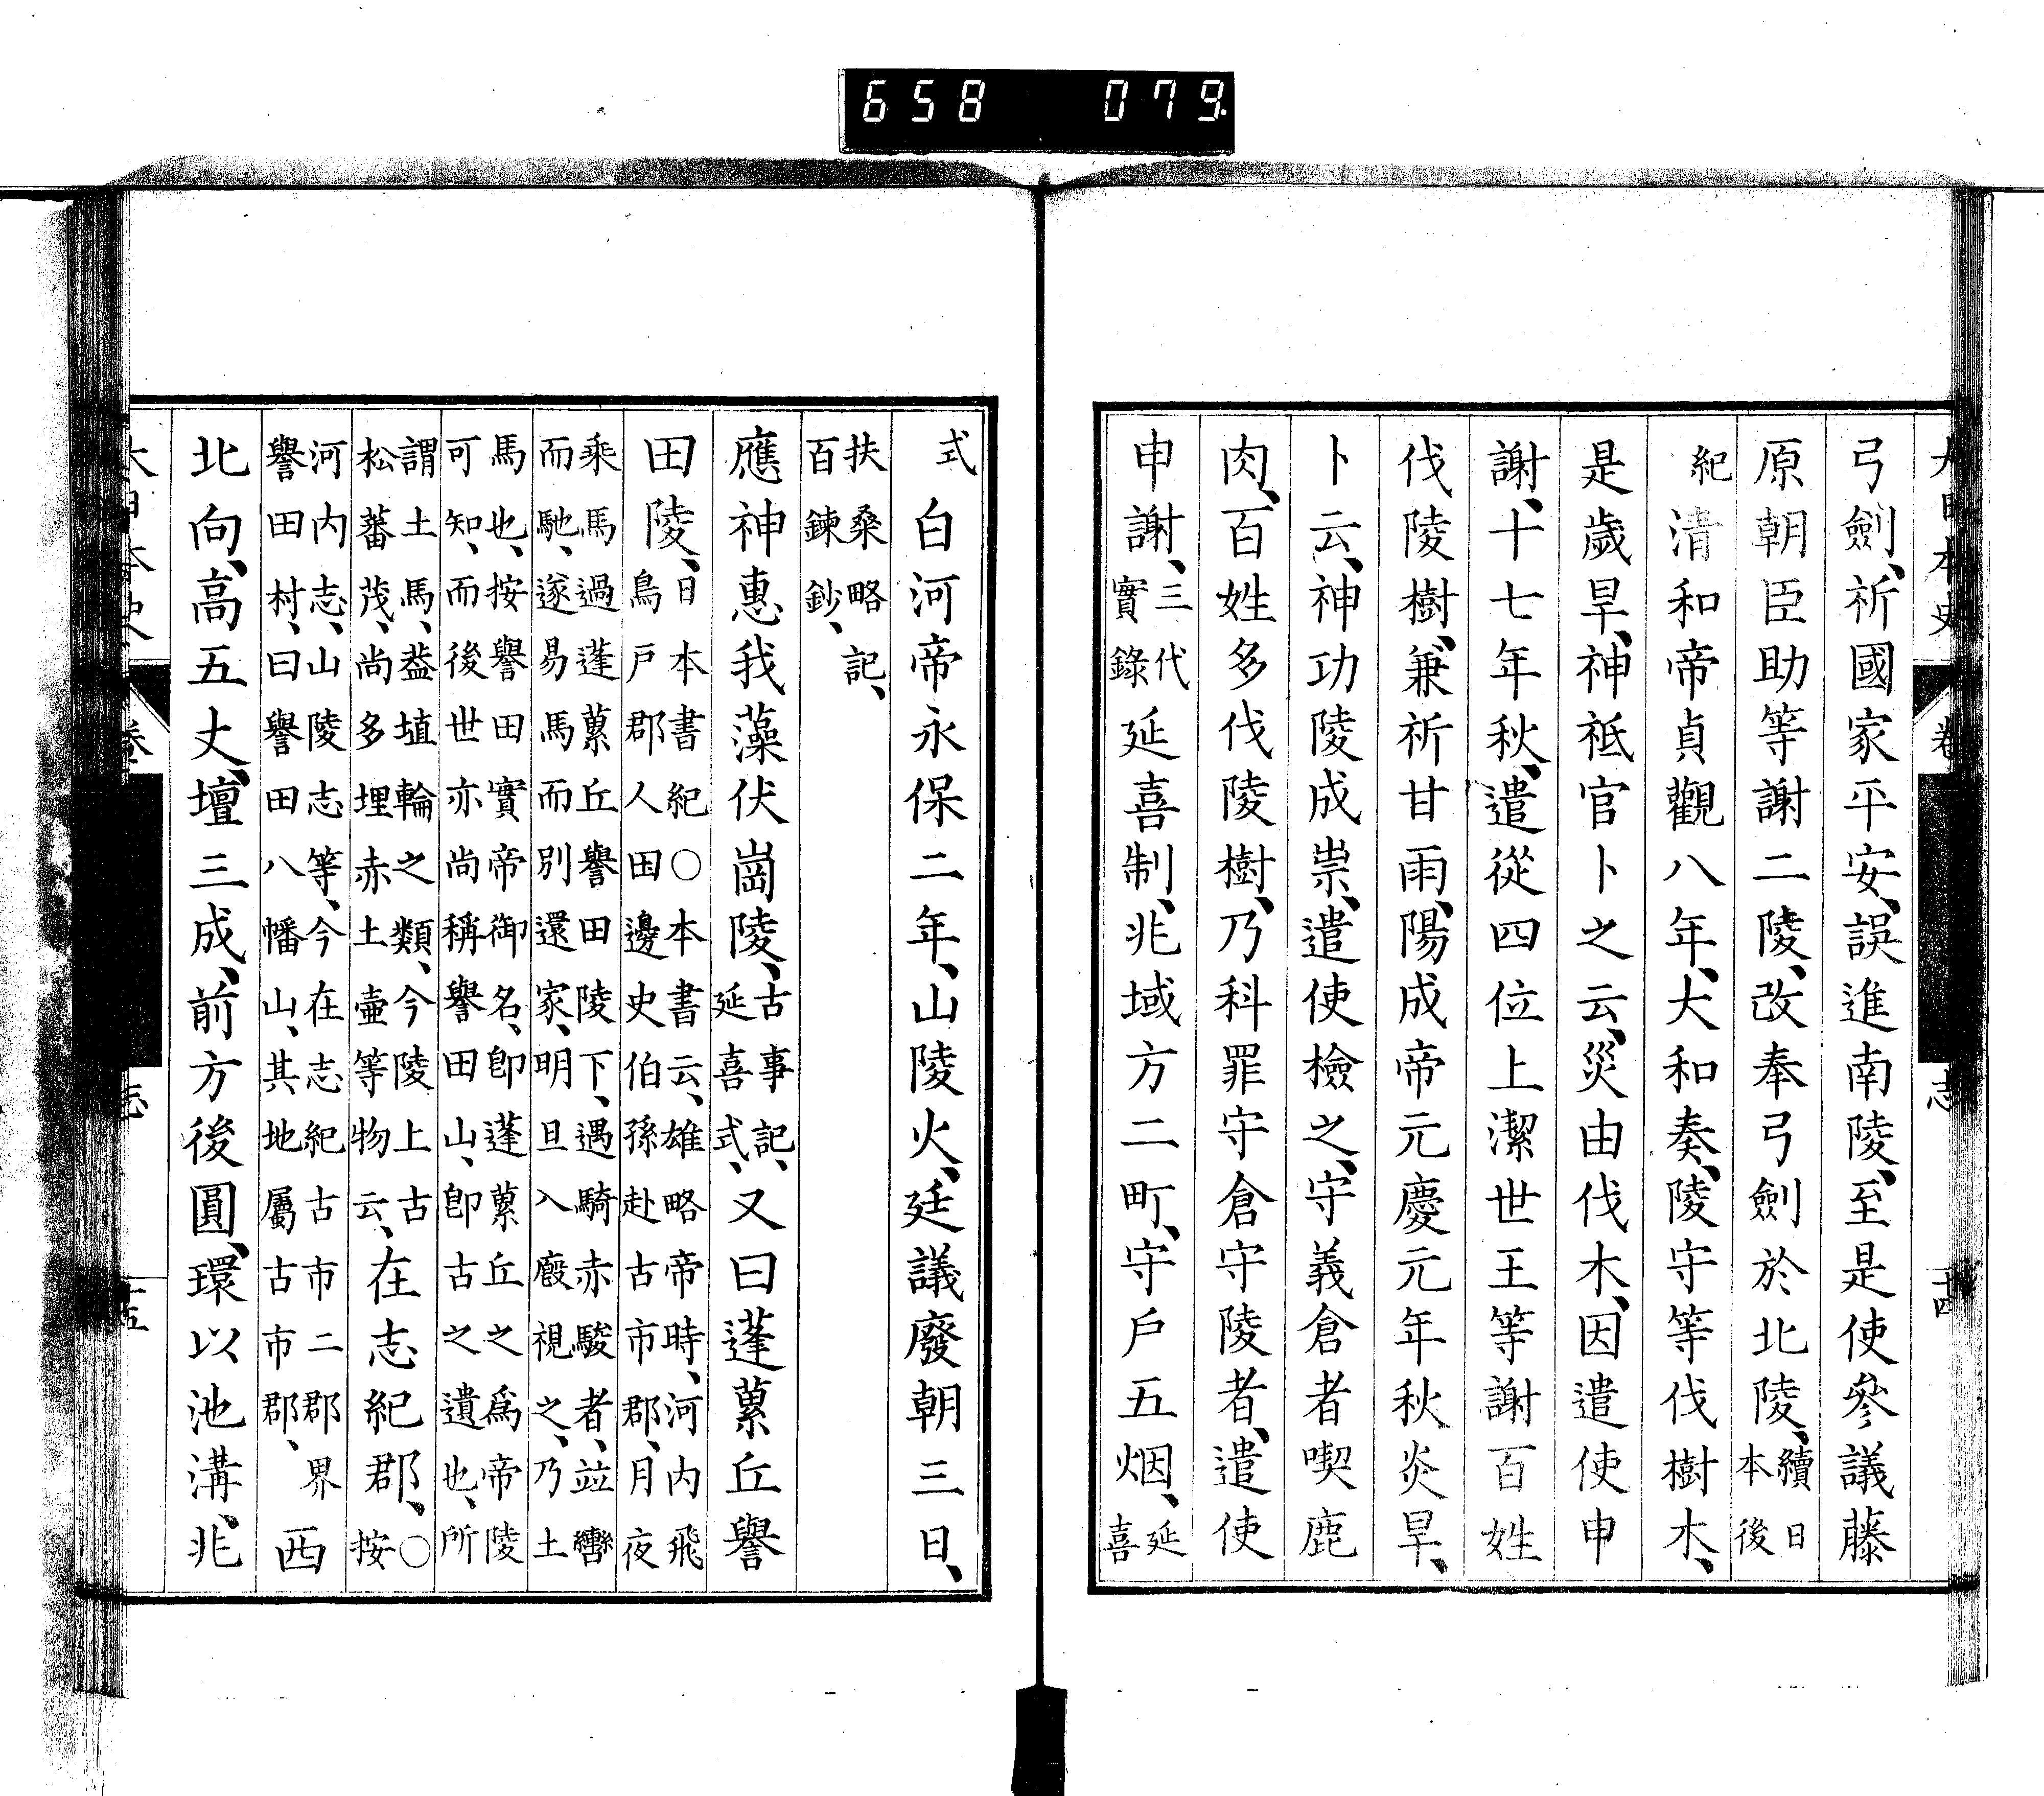 658 079
大日本史 卷 志 十四
弓劍、祈國家平安、誤進南陵、至是使參議藤
原朝臣助等謝二陵、改奉弓劍於北陵、續日本後
紀清和帝貞觀八年、大和奏、陵守等伐樹木、
是歲旱、神祇官卜之云、災由伐木、因遣使申
謝、十七年秋、遣從四位上潔世王等謝百姓
伐陵樹、兼祈甘雨、陽成帝元慶元年秋炎旱、
卜云、神功陵成祟、遣使檢之、守義倉者喫鹿
肉、百姓多伐陵樹、乃科罪守倉守陵者、遣使
申謝、三代實錄延喜制、兆域方二町、守戶五烟、延喜
式白河帝永保二年、山陵火、廷議廢朝三日、
扶桑略記、百鍊鈔、
應神惠我藻伏崗陵、古事記、延喜式、又曰蓬蔂丘譽
田陵、日本書紀○本書云、雄略帝時、河內飛鳥戶郡人田邊史伯孫赴古市郡、月夜
乘馬過蓬蔂丘譽田陵下、遇騎赤駿者、竝轡而馳、遂易馬而別還家、明旦入廄視之、乃土
馬也、按譽田實帝御名、卽蓬蔂丘之爲帝陵可知、而後世亦尚稱譽田山、卽古之遺也、所
謂土馬、葢埴輪之類、今陵上古松蕃茂、尚多埋赤土壷等物云、在志紀郡、○按
河內志、山陵志等、今在志紀古市二郡界譽田村、曰譽田八幡山、其地屬古市郡、西
北向、高五丈、壇三成、前方後圓、環以池溝、兆
大日本史 卷 志 十五